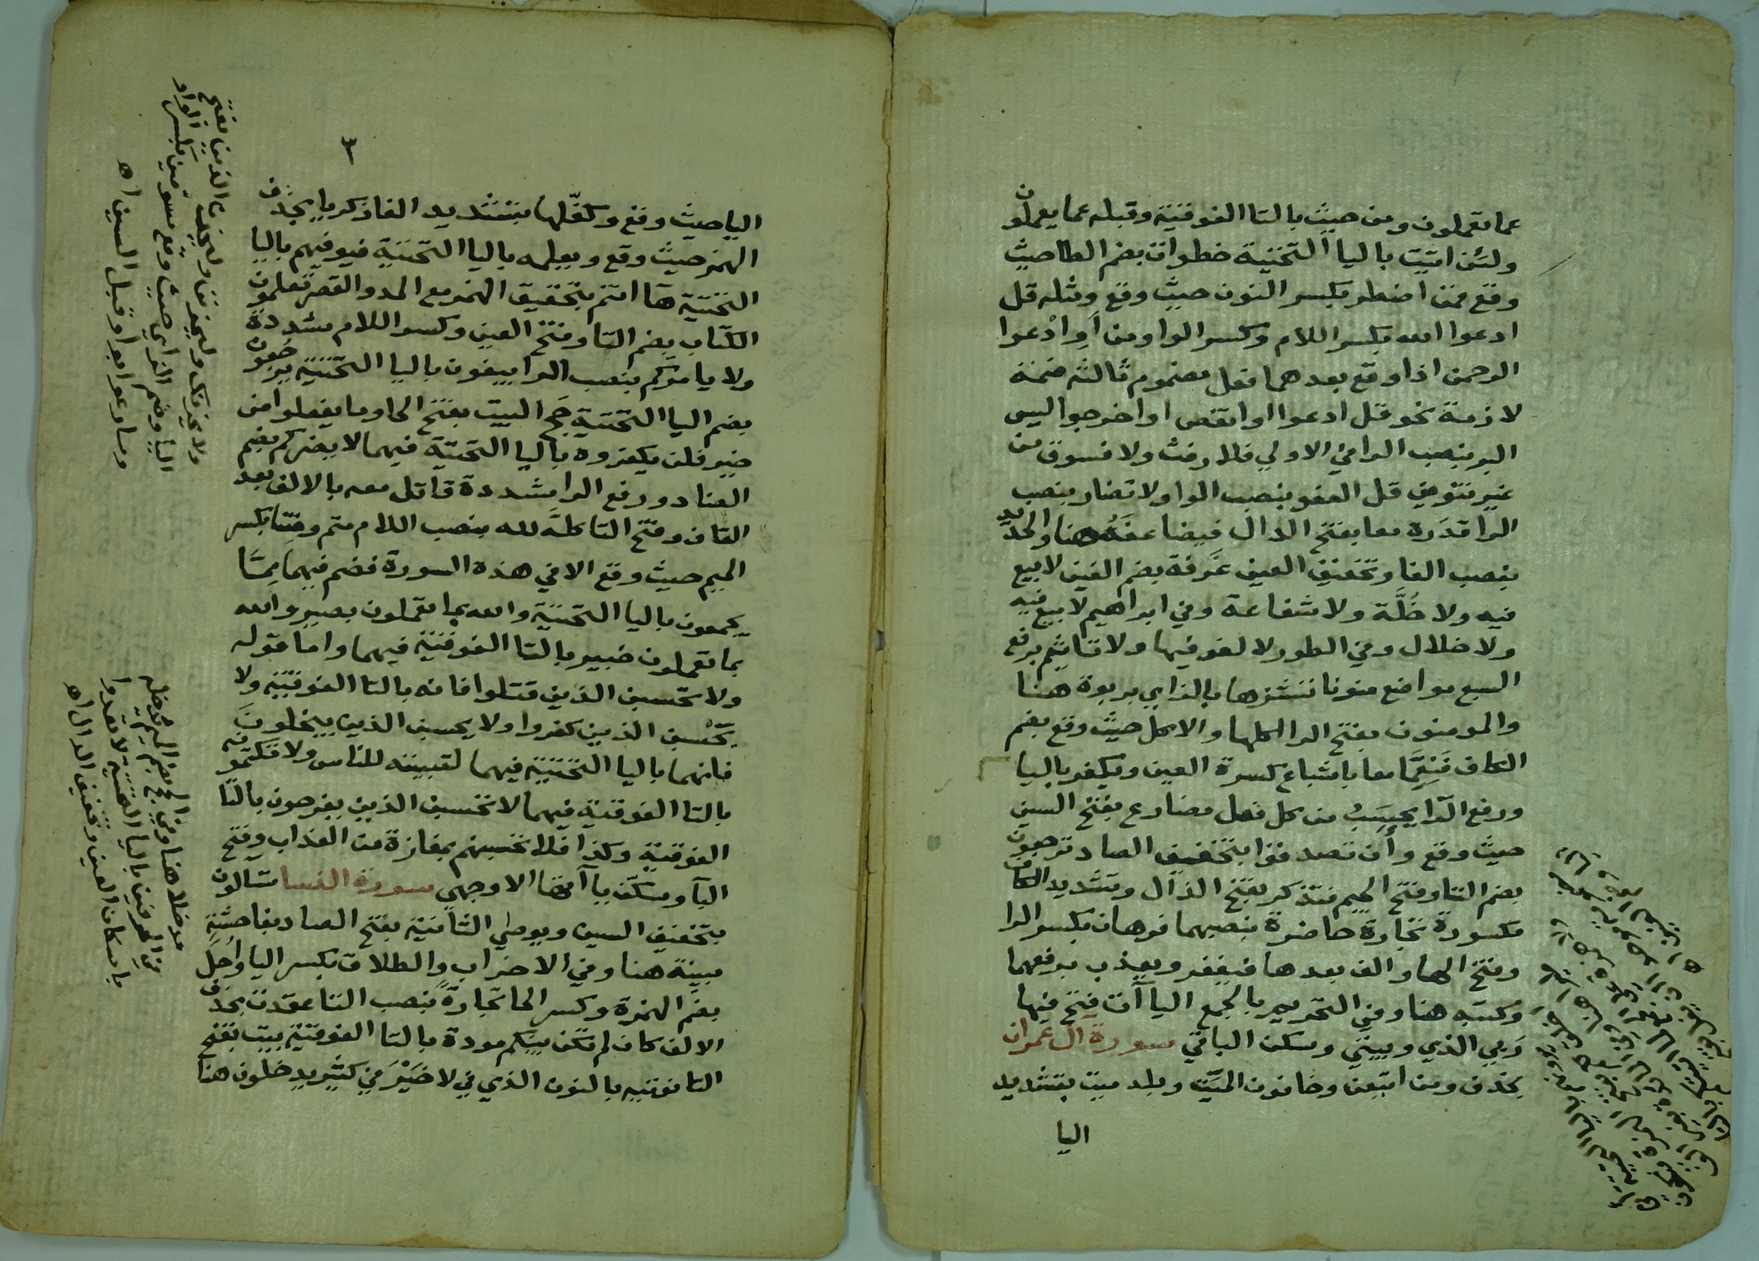 عما تعملون ومن حيث بالتا الفوقية وقبله عما يعملون
ولئن اتيت باليا التحتية خطوات بضم الطا حيث
وقع فمن اضطر بكسر النون حيث وقع ومثله قل
ادعوا الله بكسر اللام وكسر الواو من أو ادعوا
الرحمن اذا وقع بعدهما فعل مضموم ثالثه ضمة
لازمة نحو قل ادعوا او انقص او اخرجوا ليس
البر بنصب الرا في الاولي فلا رفث ولا فسوق من
غير تنوين قل العفو بنصب الواو لا تضار بنصب
الرا قدره معا بفتح الدال فيضاعفه هنا والحديد
بنصب الفا وتخفيف العين غرفة بضم الغين لا بيع
فيه ولا خلة ولا شفاعة وفي ابراهيم لا بيع فيه
ولا خلال وفي الطور لا لغو فيها ولا تاثيم برفع
السبع مواضع منونا ننشزها بالزاي بربوة هنا
والمومنون بفتح الرا اكلها والاكل حيث وقع بضم
الكاف فنعما معا باشباع كسرة العين ويكفر باليا
ورفع الرا يحسب من كل فعل مضارع بفتح السين
حيث وقع وأن تصدقوا بتخفيف الصاد ترجعون
بضم التا وفتح الجيم فتذكر بفتح الذال وتشديد الكاف
مكسورة تجارة حاضرة بنصبهما فرهان بكسر الرا
وفتح الها والف بعدها فيغفر ويعذب برفعهما
وكتبه هنا وفي التحريم بالجمع الياآت فتح فيها
ربي الذي وبيتي وسكن الباقي سورة ال عمران
بحذف ومن اتبعن وخافون الميت وبلد ميت بتشديد
اليا
اليا حيث وقع وكفلها بتشديد الفا زكريا بحذف
الهمز حيث وقع ويعلمه باليا التحتية فيوفيهم باليا
التحتية هآ انتم بتحقيق الهمز مع المد والقصر تعلمون
الكتاب بضم التا وفتح العين وكسر اللام مشددة
ولا يامركم بنصب الرا يبغون باليا التحتية يرجعون
بضم اليا التحتية حج البيت بفتح الحا وما يفعلوا من
خير فلن يكفروه باليا التحتية فيهما لا يضركم بضم
الضاد ورفع الرا مشددة قاتل معه بالالف بعد
القاف وفتح التا كله لله بنصب اللام متم ومتنا بكسر
الميم حيث وقع الا في هذه السورة فضم فيهما مما
يجمعون باليا التحتية والله بما تعملون بصير والله
بما تعملون خبير بالتا الفوقية فيهما واما قوله
ولا تحسبن الذين قتلوا فانه بالتا الفوقية ولا
يحسبن الذين كفروا ولا يحسبن الذين يبخلون
فانهما باليا التحتية فيهما لتبيننه للناس ولا تكتمونه
بالتا الفوقية فيهما لا تحسبن الذين يفرحون بالتا
الفوقية وكذا فلا تحسبنهم بمفازة من العذاب وفتح
البآ وسكن ياآتها الا وجهي سورة النسا تسالون
بتخفيف السين ويوصي الثانية بفتح الصاد بفاحشة
مبينة هنا وفي الاحزاب والطلاق بكسر اليا واحل
بضم الهمزة وكسر الحا تجارة بنصب التا عقدت بحذف
الالف كان لم تكن بينكم مودة بالتا الفوقية بيت بفتح
التا نوتيه بالنون الذي في لا خير في كثير يدخلون هنا
ولا يحزنك وليحزن وليحزنني الذين بفتح
اليا وضم الزاي حيث وقع مسومين بكسر الواو
وسارعوا بواو قبل السين اه
مدخلا هنا وفي الحج بضم الميم
باليا التحتية لا تعدوا
باسكان العين وتخفيف الدال اه